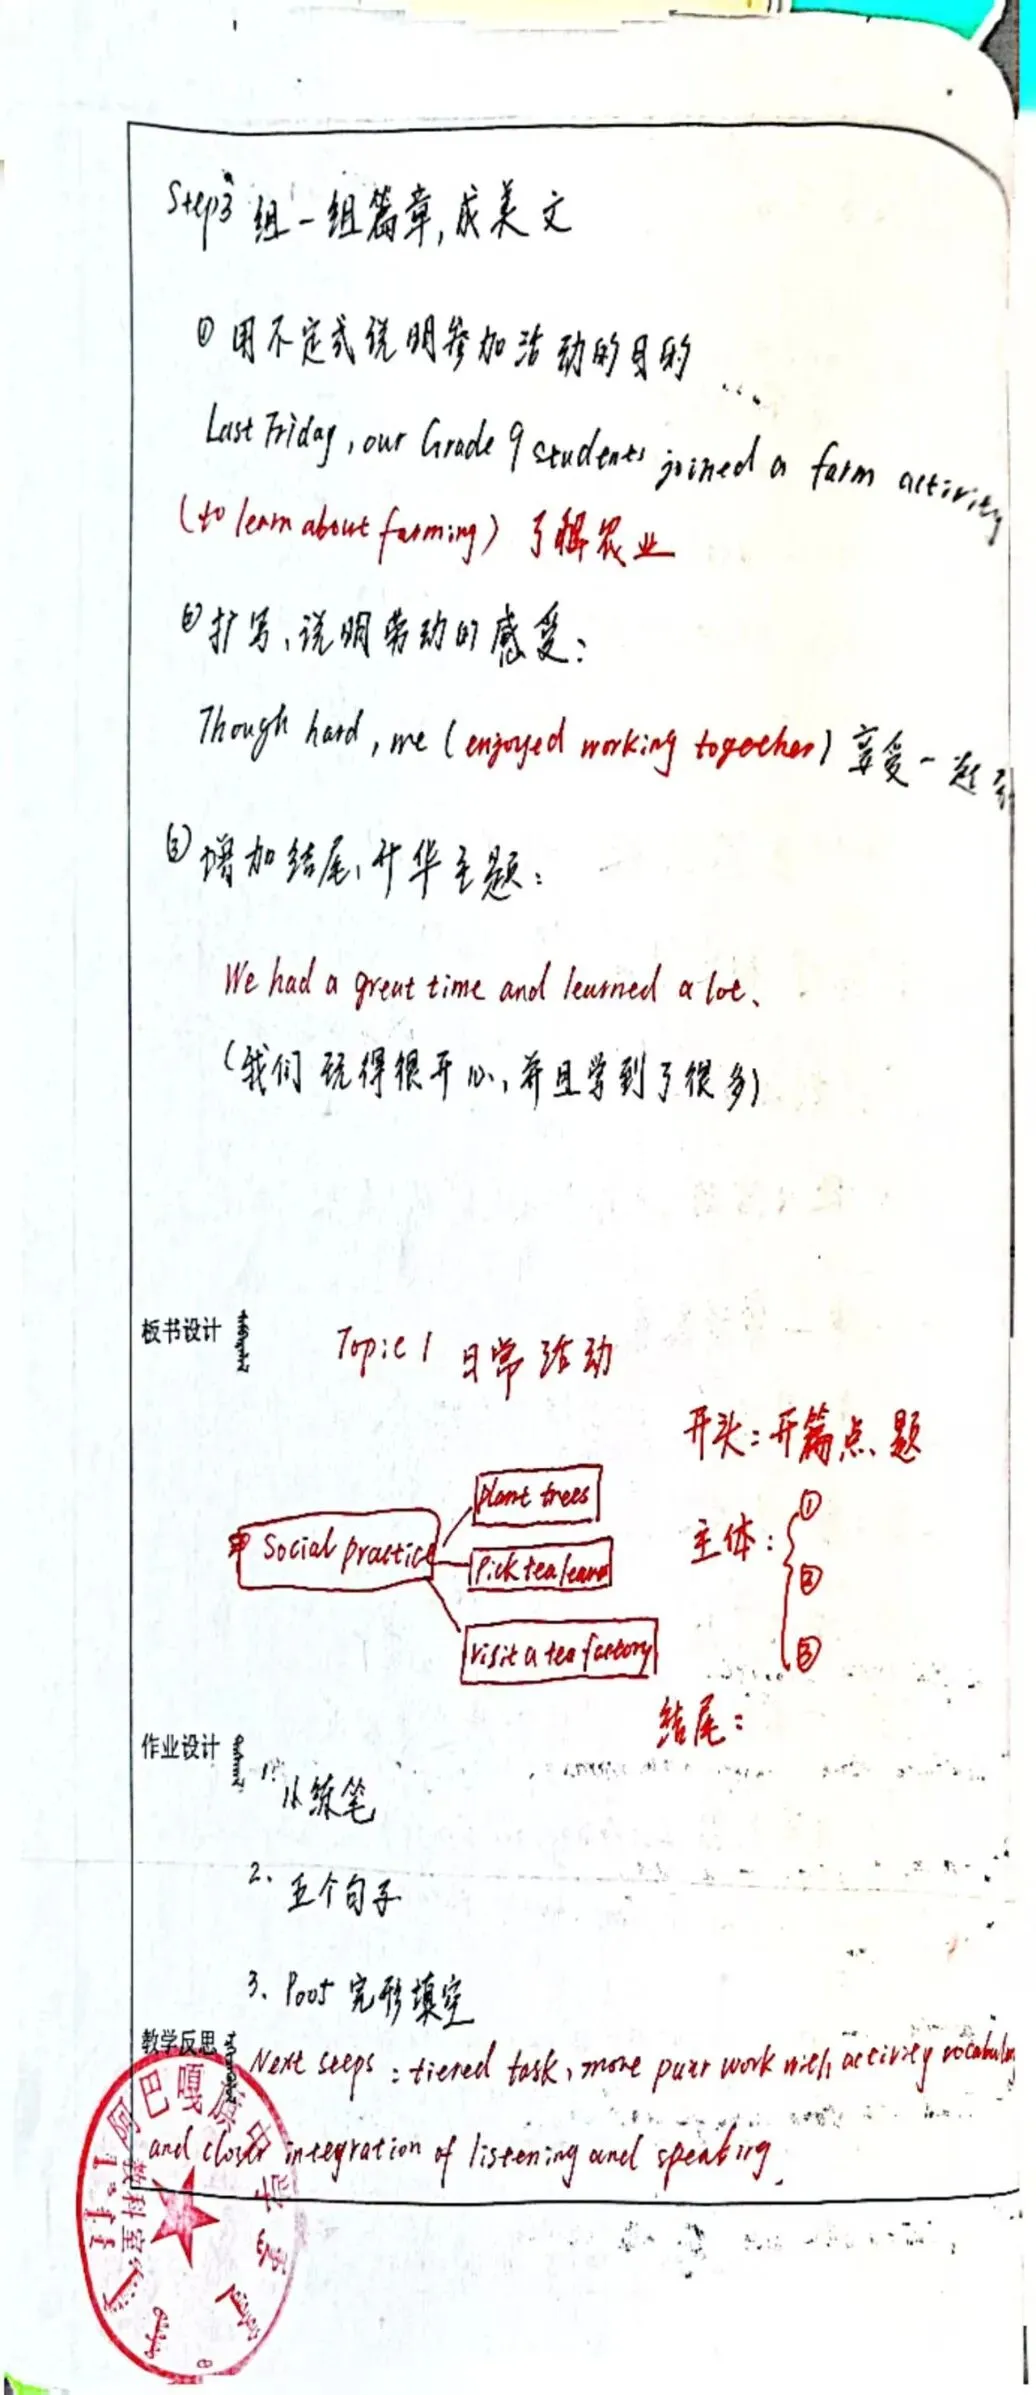 Step3 组一组篇章,成美文
① 用不定式说明参加活动的目的
Last Friday, our Grade 9 students joined a farm activity
(to learn about farming) 了解农业
② 扩写、说明劳动的感受:
Though hard, we (enjoyed working together) 享受一起
③ 增加结尾,升华主题:
We had a great time and learned a lot、
(我们玩得很开心,并且学到了很多)
板书设计
Topic 1 日常活动
开头:开篇点题
Social practice
plant trees
Pick tea leaves
visit a tea factory
主体:
①
②
③
结尾:
作业设计
1. 小练笔
2、五个句子
3、P005 完形填空
教学反思
Next steps : tiered task, more pair work with activity vocabulary
and closer integration of listening and speaking.
阿巴嘎旗
教科室